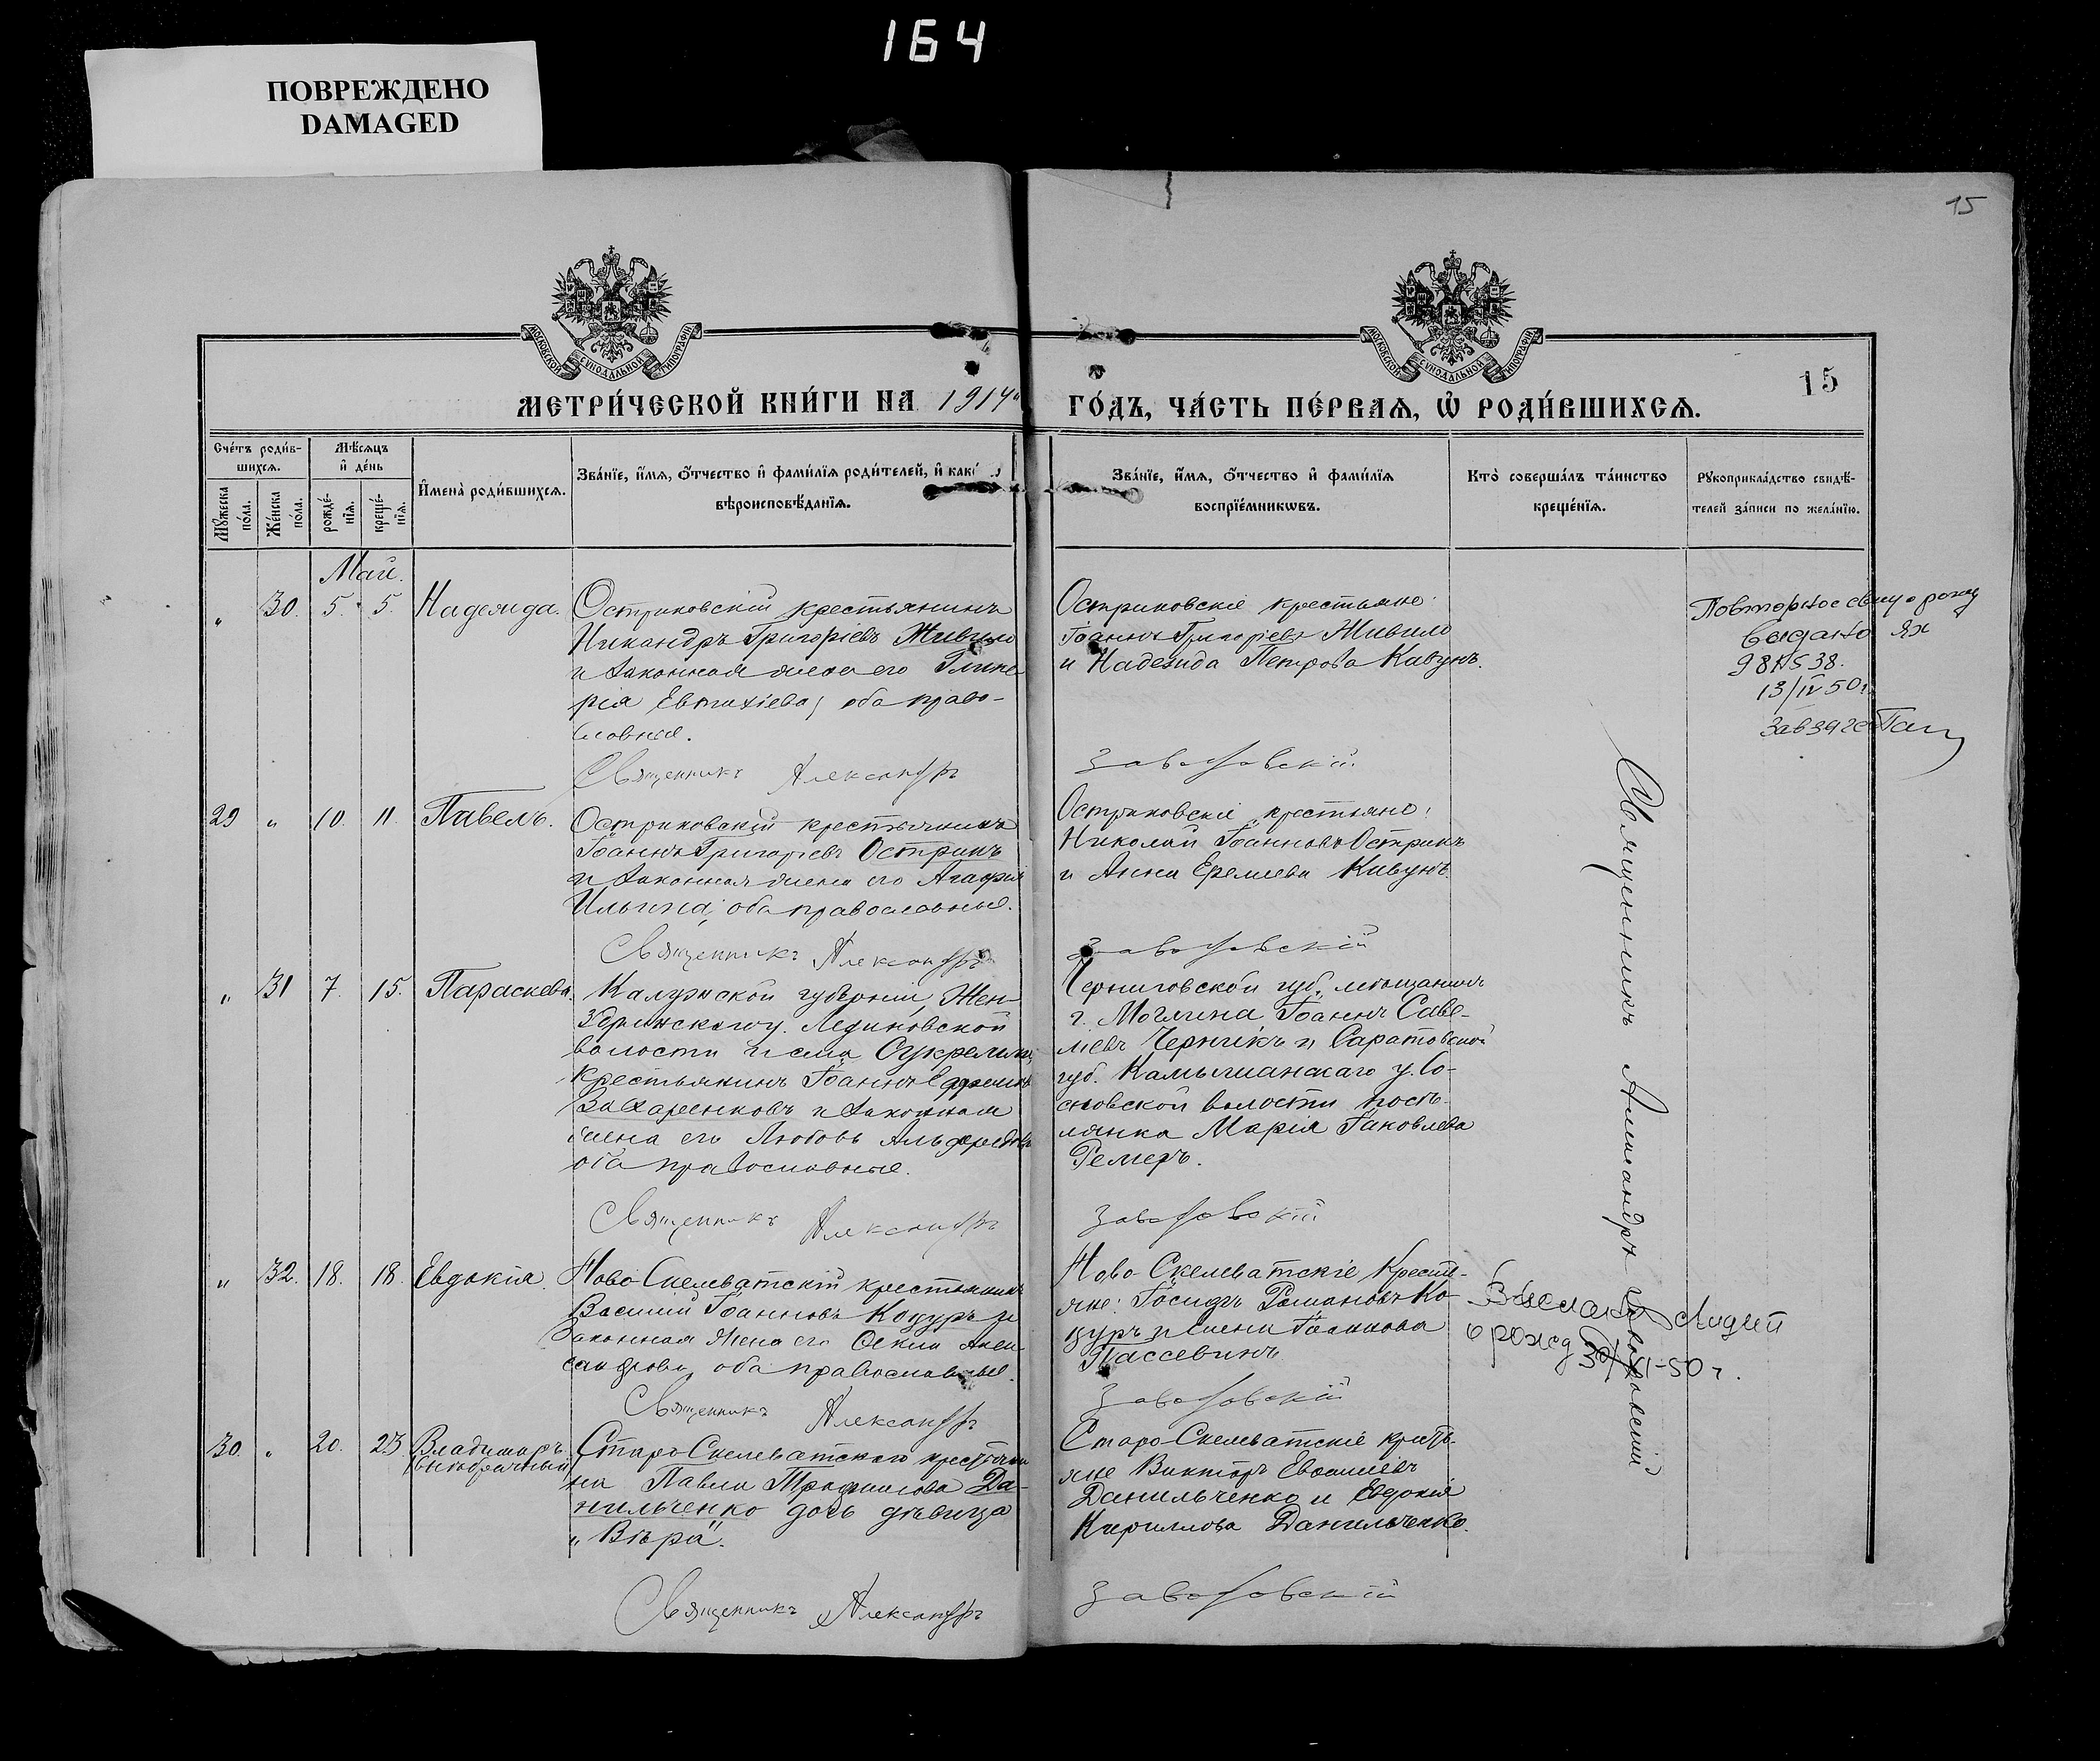 164
ПОВРЕЖДЕНО
DAMAGED
15
МОСКОВСКОЙ СѴНОДАЛЬНОЙ ТИПОГРАФІИ
МОСКОВСКОЙ СѴНОДАЛЬНОЙ ТИПОГРАФІИ
15
МЕТРИ́ЧЕСКОЙ КНИ́ГИ НА 1914 ГО́ДЪ, ЧА́СТЬ ПЕ́РВАѦ, Ѡ҆ РОДИ́ВШИХСѦ.
Сче́тъ роди́в-
шихсѧ.
Мѣ́сѧцъ
и҆ де́нь
Мꙋ́жеска
по́ла.
Же́нска
по́ла.
рожде́-
нїѧ.
креще́-
нїѧ.
И҆мена̀ роди́вшихсѧ.
Зва́нїе, и҆́мѧ, ѻ҆́тчество и҆ фамѝлїѧ роди́телей, и҆ как
вѣроисповѣ́данїѧ.
Зва́нїе, и҆́мѧ, ѻ҆́тчество и҆ фами́лїѧ
воспрїе́мникѡвъ.
Кто̀ соверша́лъ та́инство
креще́нїѧ.
Рꙋкоприкла́дство свидѣ́-
телей за́писи по жела́нїю.
Май.
" 30. 5. 5. Надежда.
Остриковскій крестьянинъ
Никандръ Григоріевъ Живило
и законная жена его Глике
рія Евтихіева, оба право-
славные.
Священникъ Александръ
Остриковскіе крестьяне:
Іоаннъ Григоріевъ Живило
и Надежда Петрова Кавунъ.
Завадовскій
Повторное свид о рожд
выдано ЯХ
98 38.
13/IV 50г.
Зав загс
29 " 10. 11. Павелъ.
Остриковскій крестьянинъ
Іоаннъ Григоріевъ Острикъ
и законная жена его Агафія
Ильина, оба православные.
Священникъ Александръ
Остриковскіе крестьяне:
Николай Іоанновъ Острикъ
и Анна Еремеева Кавунъ.
Завадовскій
" 31 7. 15. Параскева.
Калужской губерніи, Жиз-
дринскаго у.
волости и села
крестьянинъ Іоаннъ
Захаренковъ и законная
жена его Любовь Альфредова
оба православные.
Священникъ Александръ
Черниговской губ. мѣщанинъ
г. Мглина Іоаннъ Саве-
ліевъ Чернякъ и Саратовской
губ. Камышинскаго у. Со-
сновской волости посе-
лянка Марія Іаковлева
Ремеръ.
Завадовскій
" 32. 18. 18. Евдокія.
Ново-Скелеватскій крестьянинъ
Василій Іоанновъ Коцуръ и
законная жена его Александрова
оба православные.
Священникъ Александръ
Ново-Скелеватскіе крестья-
яне: Іосифъ Романовъ Ко-
цуръ и Іоаннова
Пассевинъ
Завадовскій
о рожд 30/XI-50г.
30. " 20. 23 Владиміръ
(внебрачный)
Старо-Скелеватскаго крестьяни
на Павла Трофимова Да-
нильченко дочь дѣвица
„Вѣра".
Священникъ Александръ
Старо-Скелеватскіе кресть-
яне Викторъ
Данильченко и Евдокія
Кириллова Данильченко.
Завадовскій
Священникъ Александръ Завадовскій